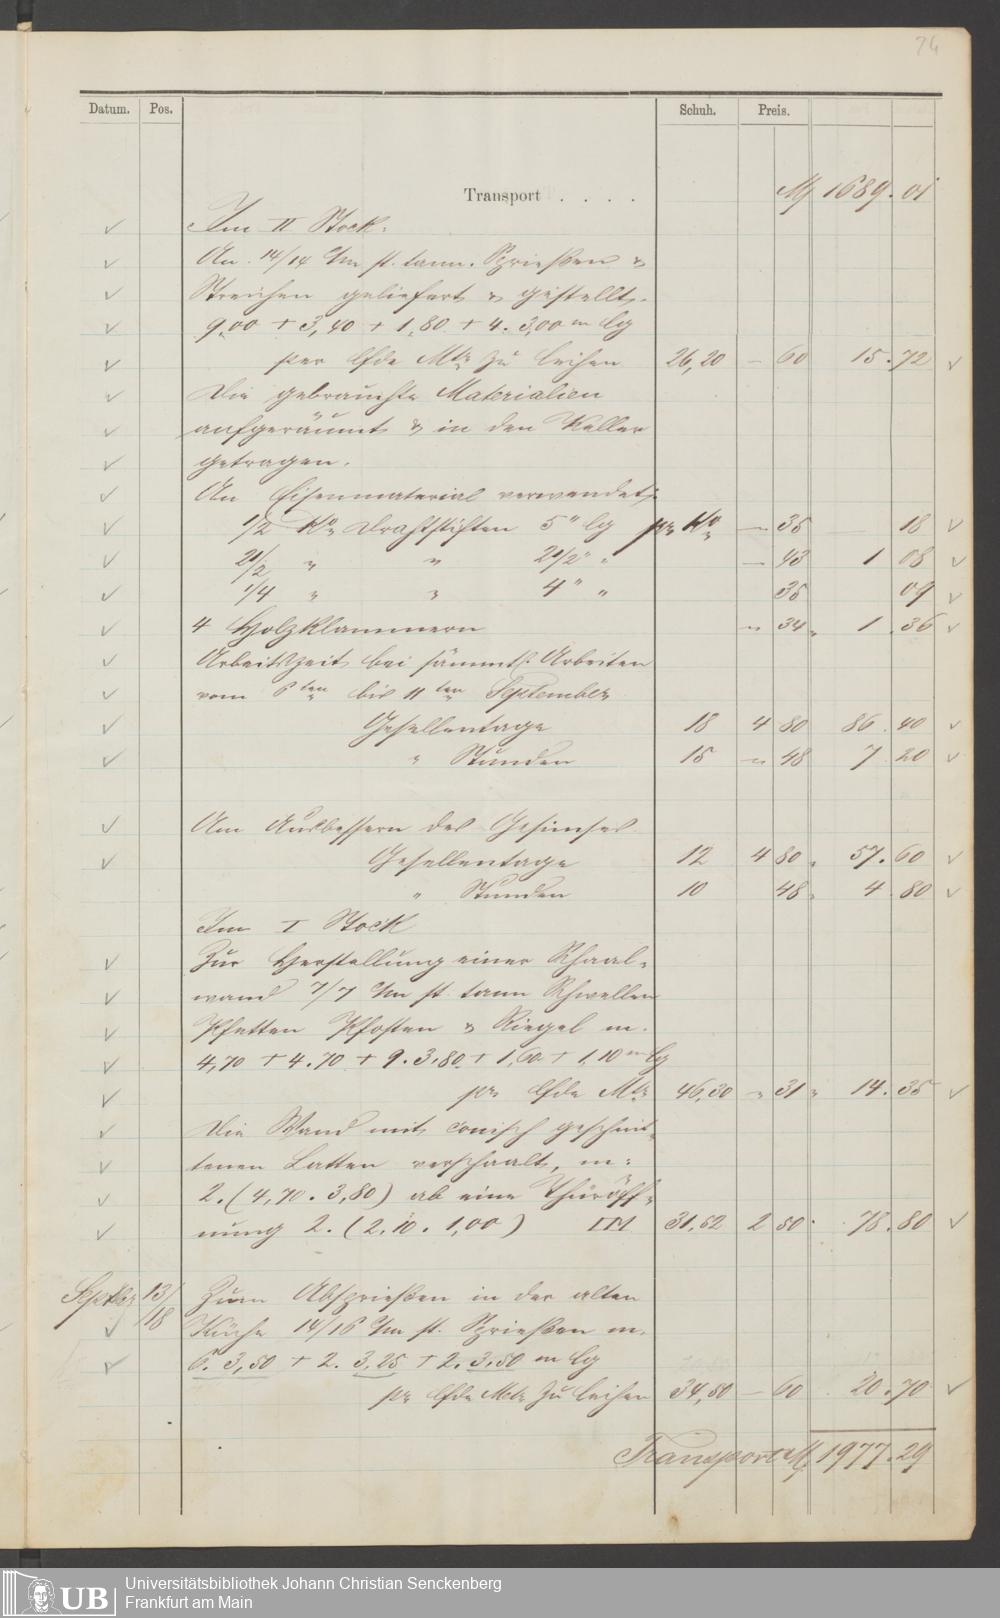 74
Datum. Pos. Schuh. Preis.
Transport . . . . M 1689.01
Im II Stock.
An 14/14 c/m st. tann. Sprießen &
Streichen geliefert & gestellt.
9,00 + 3,40 + 1,80 + 4. 3,00 m lg
per lfde Mtr zu leihen 26,20 – 60 15.72
Die gebrauchte Materialien
aufgeräumt & in den Keller
getragen.
An Eisenmaterial verwendet:
1/2 Ko Drahtstiften 5" lg pr Ko – 35 18
2 1/2 " " 2 1/2" " – 43 1 08
1/4 " " 4" " 35 09
4 Holzklammern " 34 1.36
Arbeitszeit bei sämmtl. Arbeiten
vom 6ten bis 11ten September
Gesellentage 18 4 80 86.40
" Stunden 15 – 48 7 20
Am Ausbessern des Gesimses
Gesellentage 12 4 80 57.60
" Stunden 10 48 4.80
Im I Stock
Zur Herstellung einer Schaal-
wand 7/7 c/m st. tann Schwellen
Pfetten Pfosten & Riegel m.
4,70 + 4.70 + 9. 3,80 + 1,60 + 1,10 m lg
pr lfde Mtr 46,30 " 31 14.35
Die Wand mit conisch geschnit-
tenen Latten verschaalt, m:
2. (4,70. 3,80) ab eine Thüröff-
nung 2. (2,10. 1,00) □M 31,52 2 50 78.80
Septbr 13/18 Zum Absprießen in der alten
Küche 14/16 c/m st. Sprießen m.
6. 3,50 + 2. 3,25 + 2. 3,50 m lg
pr lfde Mtr zu leihen 34,50 – 60 20.70
Transport M 1977.29
UB
Universitätsbibliothek Johann Christian Senckenberg
Frankfurt am Main